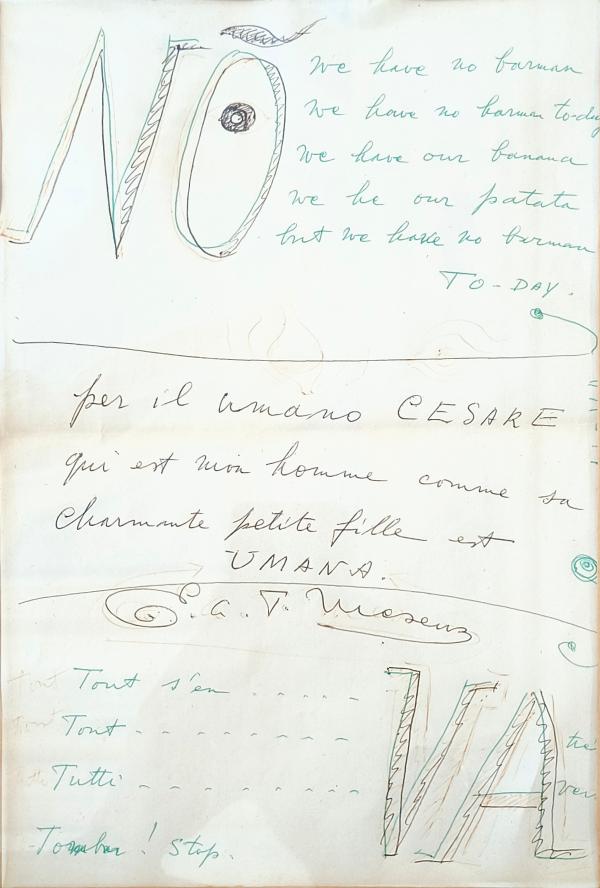 NO
we have no barman
we have no barman to-day
we have our banana
we he our patata
but we have no barman
TO-DAY.
per il umano CESARE
qui est mon homme comme sa
charmante petite fille est
UMANA.
E. L. T. Mesens
Tout s'en
Tout
Tutti
VA
Tomber! Stop.